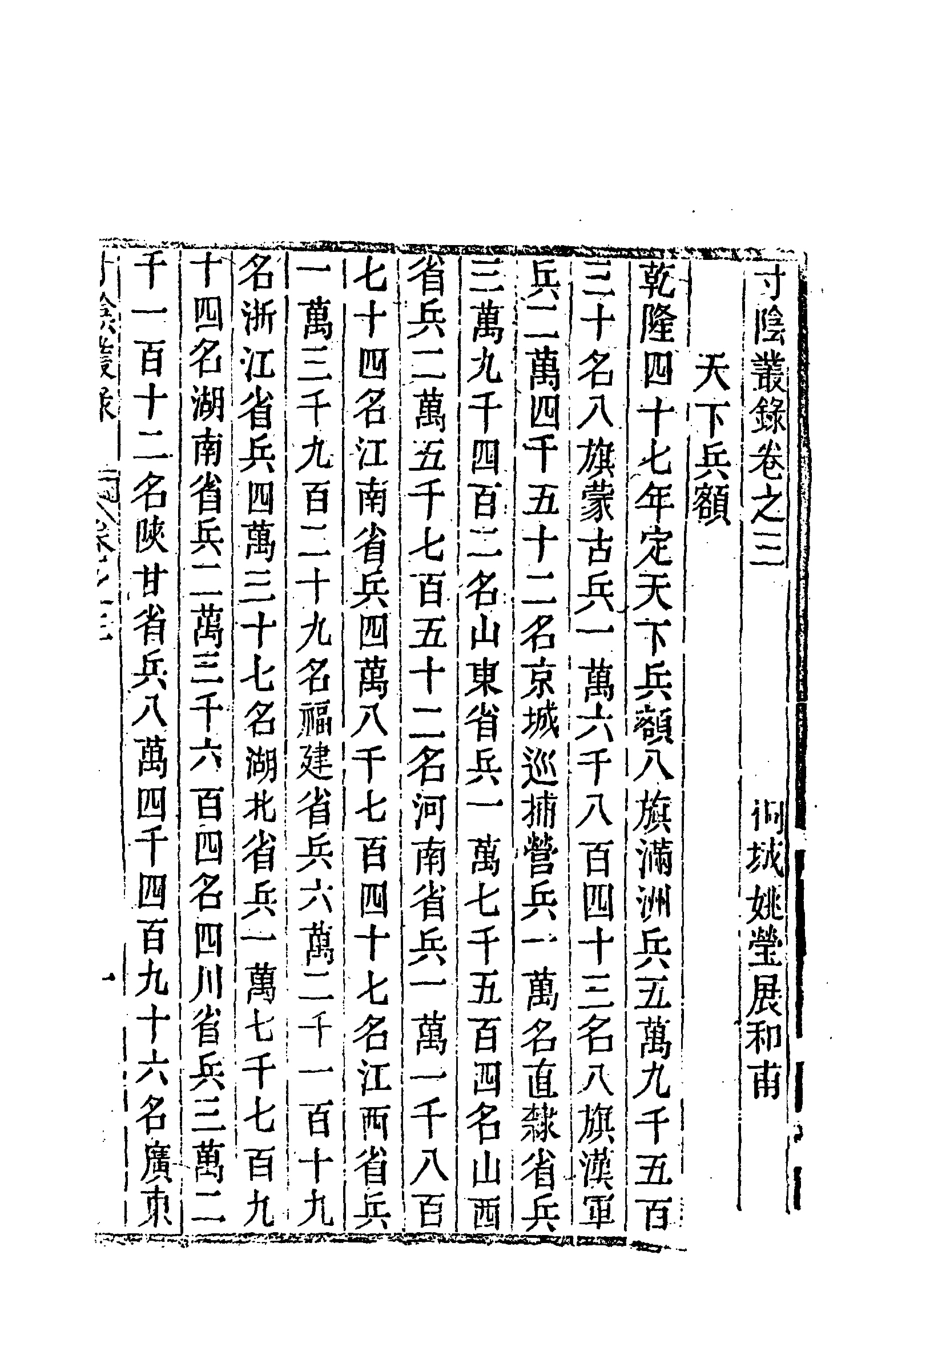 寸陰叢錄卷之三
桐城姚瑩展和甫
天下兵額
乾隆四十七年定天下兵額八旗滿洲兵五萬九千五百
三十名八旗蒙古兵一萬六千八百四十三名八旗漢軍
兵二萬四千五十二名京城巡捕營兵一萬名直隸省兵
三萬九千四百二名山東省兵一萬七千五百四名山西
省兵二萬五千七百五十二名河南省兵一萬一千八百
七十四名江南省兵四萬八千七百四十七名江西省兵
一萬三千九百二十九名福建省兵六萬二千一百十九
名浙江省兵四萬三十七名湖北省兵一萬七千七百九
十四名湖南省兵二萬三千六百四名四川省兵三萬二
千一百十二名陝甘省兵八萬四千四百九十六名廣東
寸陰叢錄 卷之三 一